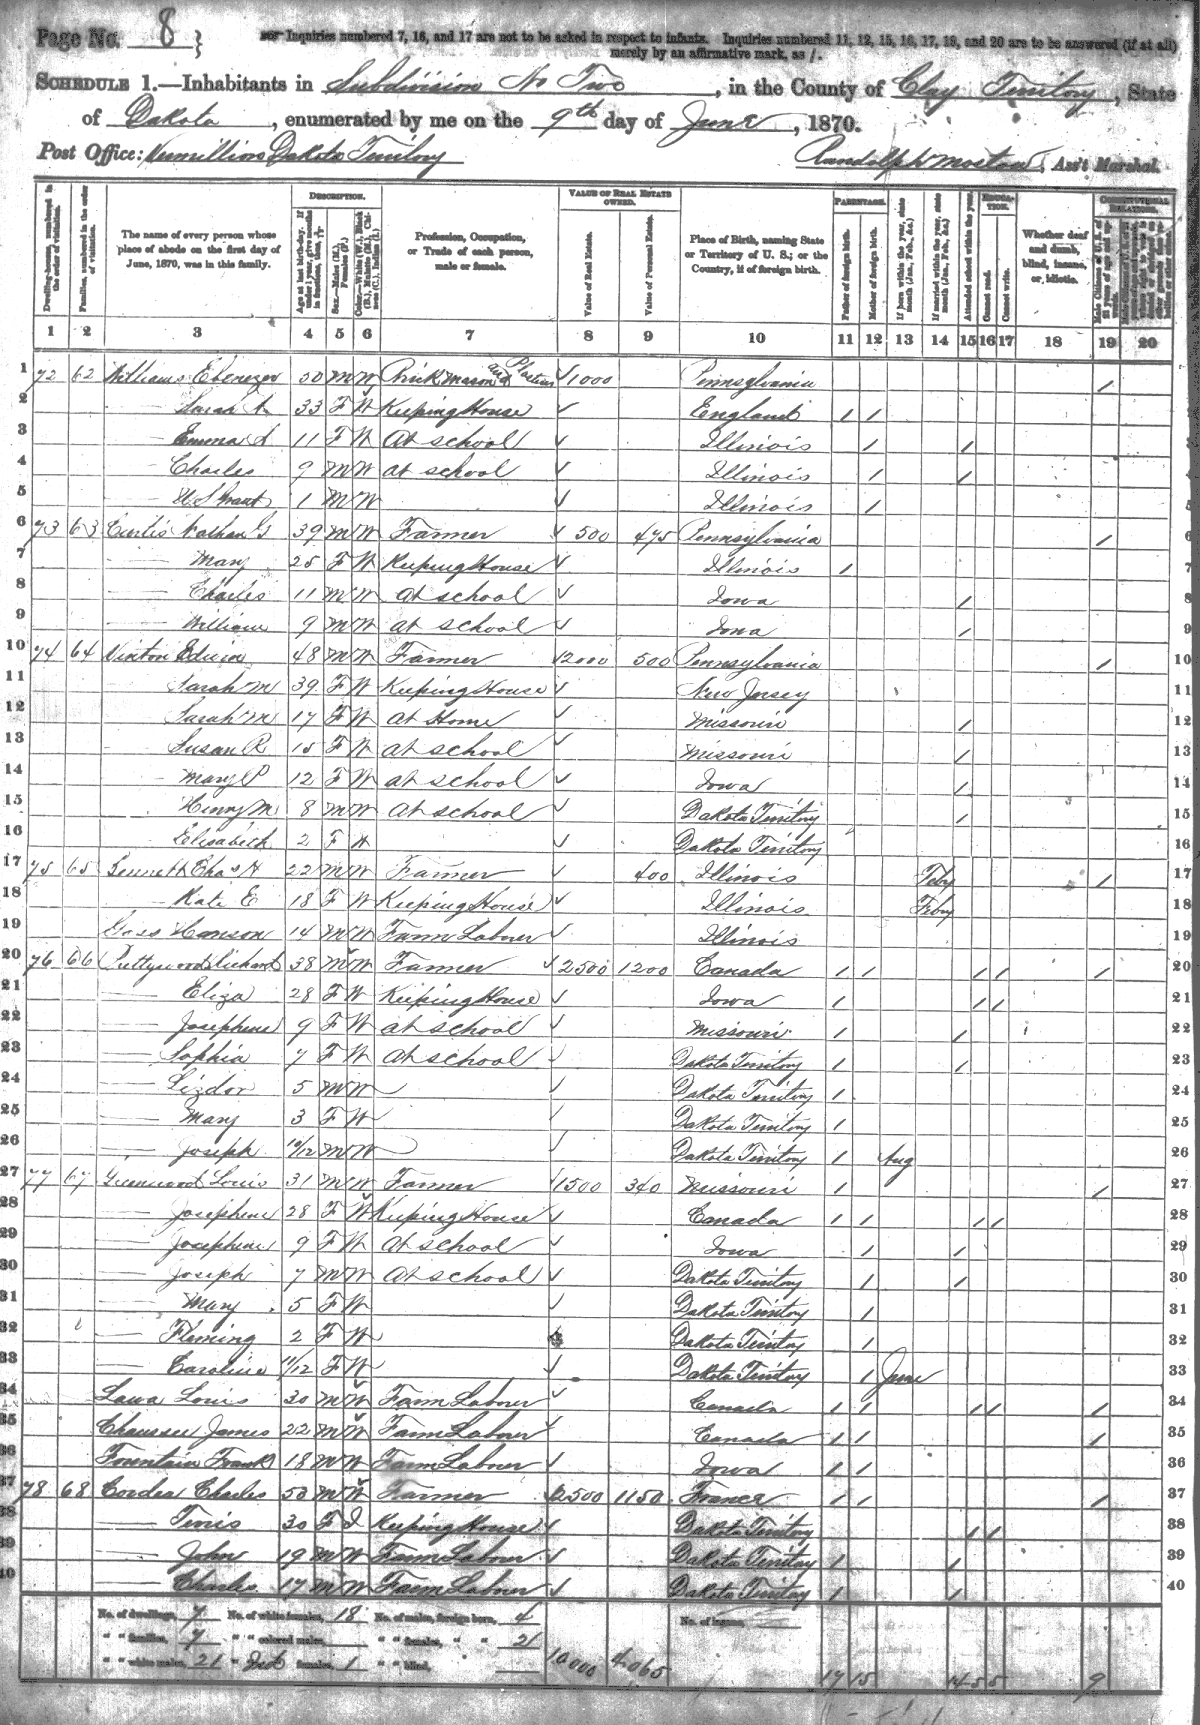 Page No. 8
Inquiries numbered 7, 16, and 17 are not to be asked in respect to infants. Inquiries numbered 11, 12, 15, 16, 17, 19, and 20 are to be answered (if at all)
merely by an affirmative mark, as /.
SCHEDULE 1.—Inhabitants in Subdivision No Two, in the County of Clay Territory, State
of Dakota, enumerated by me on the 9th day of June, 1870.
Post Office: Vermillion Dakota Territory Ass't Marshal.
DESCRIPTION. VALUE OF REAL ESTATE OWNED. PARENTAGE. EDUCATION. CONSTITUTIONAL RELATIONS.
Dwelling-houses, numbered in the order of visitation.
Families, numbered in the order of visitation.
The name of every person whose place of abode on the first day of June, 1870, was in this family.
Age at last birth-day. If under 1 year, give months in fractions, thus,
Sex.—Males (M.), Females (F.)
Color.—White (W.), Black (B.), Mulatto (M.), Chinese (C.), Indian (I.)
Profession, Occupation, or Trade of each person, male or female.
Value of Real Estate.
Value of Personal Estate.
Place of Birth, naming State or Territory of U. S.; or the Country, if of foreign birth.
Father of foreign birth.
Mother of foreign birth.
If born within the year, state month (Jan., Feb., &c.)
If married within the year, state month (Jan., Feb., &c.)
Attended school within the year.
Cannot read.
Cannot write.
Whether deaf and dumb, blind, insane, or idiotic.
Male Citizens of U. S. of 21 years of age and upwards.
1 2 3 4 5 6 7 8 9 10 11 12 13 14 15 16 17 18 19 20
1 72 62 Williams Ebenezer 50 M W Brick Mason and 1000 Pennsylvania / 1
2 — Sarah A 33 F W Keeping House England / / 2
3 — Emma A 11 F W At school Illinois / / 3
4 — Charles 9 M W at school Illinois / / 4
5 — U S Grant 1 M W Illinois / 5
6 73 63 Curtis Nathan G 39 M W Farmer 500 475 Pennsylvania / 6
7 — Mary 25 F W Keeping House Illinois / 7
8 — Charles 11 M W At school Iowa / 8
9 — William 9 M W at school Iowa / 9
10 74 64 Vinton Edwin 48 M W Farmer 2000 500 Pennsylvania / 10
11 — Sarah M 39 F W Keeping House New Jersey 11
12 — Sarah M 17 F W At Home Missouri / 12
13 — Susan R 15 F W At school Missouri / 13
14 — Mary P 12 F W at school Iowa / 14
15 — Henry M 8 M W At school Dakota Territory / 15
16 — Elisabeth 2 F W Dakota Territory 16
17 75 65 Bennett Chas H 22 M W Farmer 400 Illinois Feby / 17
18 — Kate E 18 F W Keeping House Illinois Feby 18
19 Goss Hanson 14 M W Farm Laborer Illinois 19
20 76 66 Prettywood Richard 38 M W Farmer 2500 1200 Canada / / / / / 20
21 — Eliza 28 F W Keeping House Iowa / / / 21
22 — Josephene 9 F W at school Missouri / / 22
23 — Sophia 7 F W At school Dakota Territory / / 23
24 — Lizdor 5 M W Dakota Territory / 24
25 — Mary 3 F W Dakota Territory / 25
26 — Joseph 10/12 M W Dakota Territory / Aug 26
27 77 67 Greenwood Louis 31 M W Farmer 1500 340 Missouri / / 27
28 — Josephene 28 F W Keeping House Canada / / / / 28
29 — Josephene 9 F W At school Iowa / / 29
30 — Joseph 7 M W At school Dakota Territory / / 30
31 — Mary 5 F W Dakota Territory / 31
32 — Fleming 2 F W Dakota Territory / 32
33 — Caroline 11/12 F W Dakota Territory / June 33
34 Lawa Louis 30 M W Farm Laborer Canada / / / / / 34
35 James 22 M W Farm Laborer Canada / / / 35
36 Fountain Frank 18 M W Farm Laborer Iowa / / 36
37 78 68 Cordea Charles 50 M W Farmer 2500 1150 France / / / 37
38 — 30 F I Keeping House Dakota Territory / / 38
39 — John 19 M W Farm Laborer Dakota Territory / / 39
40 — Charles 17 M W Farm Laborer Dakota Territory / / 40
No. of dwellings, 7 No. of white females, 18 No. of males, foreign born, 4 No. of insane,
" " families, 7 " " colored males, " " females, " " 21
" " white males, 21 " Ind females, 1 " " blind, 10000 4065 17 15 14 5 5 9